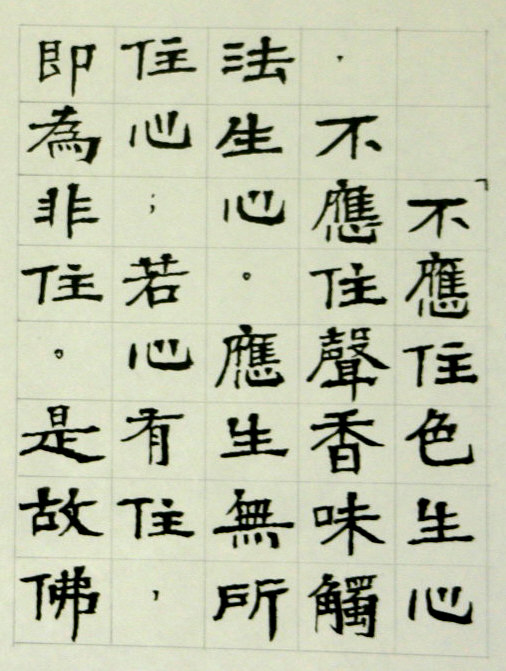 「不應住色生心
，不應住聲香味觸
法生心。應生無所
住心；若心有住，
即為非住。是故佛